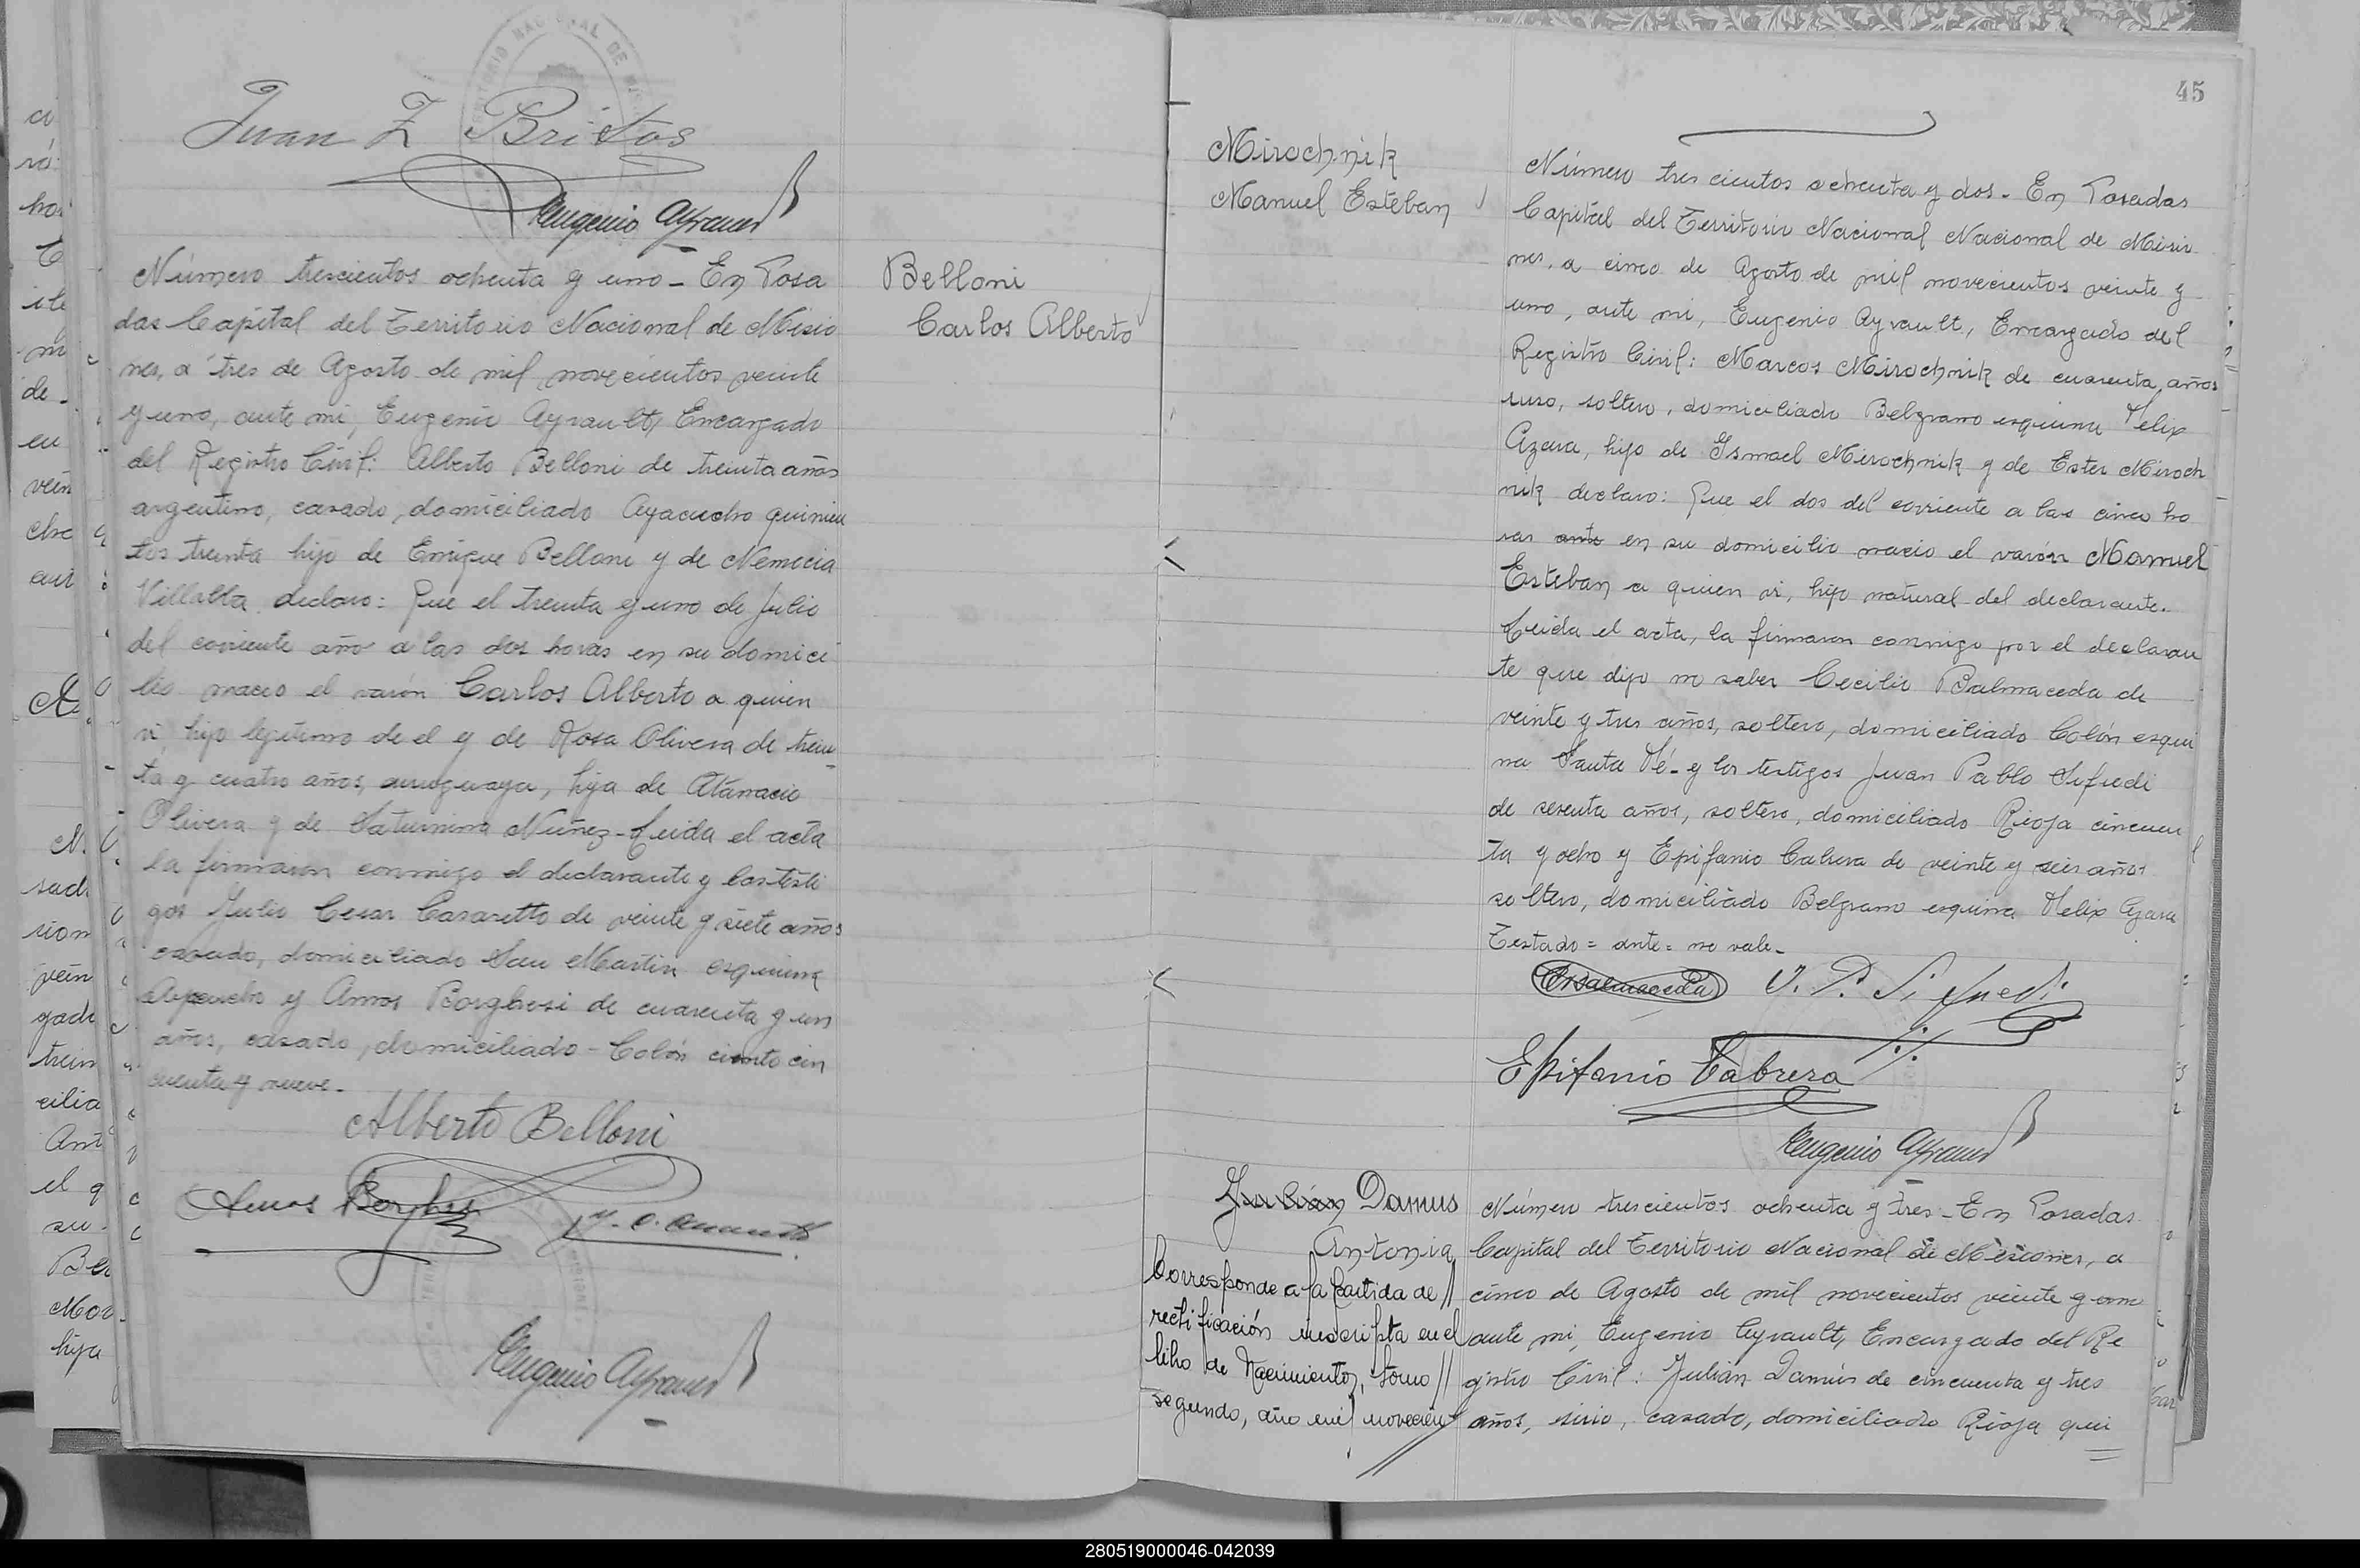 Juan Z Britos
Eugenio Ayrault
Número trescientos ochenta y uno - En Posa
das Capital del Territorio Nacional de Misio
nes, a tres de Agosto de mil novecientos veinte
y uno, ante mi, Eugenio Ayrault, Encargado
del Registro Civil: Alberto Belloni de treinta años
argentino, casado, domiciliado Ayacucho quinien
tos treinta hijo de Enrique Belloni y de Nemecia
Villalba declaro: Que el treinta y uno de Julio
del corriente año a las dos horas en su domici
lio nacio el varón Carlos Alberto a quien
vi, hijo legitimo de el y de Rosa Olivera de trein
ta y cuatro años, uruguaya, hija de Atanacio
Olivera y de Saturnina Nuñez - Leida el acta
la firmaron conmigo el declarante y los testi
gos Julio Cesar Casaretto de veinte y siete años
casado, domiciliado San Martin esquina
Ayacucho y Amos Borghesi de cuarenta y un
años, casado, domiciliado - Colón ciento cin
cuenta y nueve.
Alberto Belloni
Amos Borghesi
Eugenio Ayrault
Belloni
Carlos Alberto
45
Mirochnik
Manuel Esteban
Número tres cientos ochenta y dos - En Posadas
Capital del Territorio Nacional Nacional de Misio
nes, a cinco de Agosto de mil novecientos veinte y
uno, ante mi, Eugenio Ayrault, Encargado del
Registro Civil: Marcos Mirochnik de cuarenta, años
ruso, soltero, domiciliado Belgrano esquina Felix
Azara, hijo de Ismael Mirochnik y de Ester Miroch
nik declaro: Que el dos del corriente a las cinco ho
ras ante en su domicilio nacio el varón Manuel
Esteban a quien vi, hijo natural del declarante.
Leida el acta, la firmaron conmigo por el declaran
te que dijo no saber Cecilio Balmaceda de
veinte y tres años, soltero, domiciliado Colón esqui
na Santa Fé - y los testigos Juan Pablo Sifredi
de sesenta años, soltero, domiciliado Rioja cincuen
ta y ocho y Epifanio Cabrera de veinte y seis años
soltero, domiciliado Belgrano esquina Felix Azara
Testado = ante = no vale -
CBalmaceda
J. P. Sifredi
Epifanio Cabrera
Eugenio Ayrault
Julián Damus
Antonia
Corresponde a la partida de //
rectificación inscripta en el
libro de Nacimientos, tomo //
segundo, año mil novecien
Número trescientos ochenta y tres - En Posadas
Capital del Territorio Nacional de Misiones, a
cinco de Agosto de mil novecientos veinte y uno
ante mi, Eugenio Ayrault, Encargado del Re
gistro Civil: Julián Damús de cincuenta y tres
años, sirio, casado, domiciliado Rioja qui
280519000046-042039